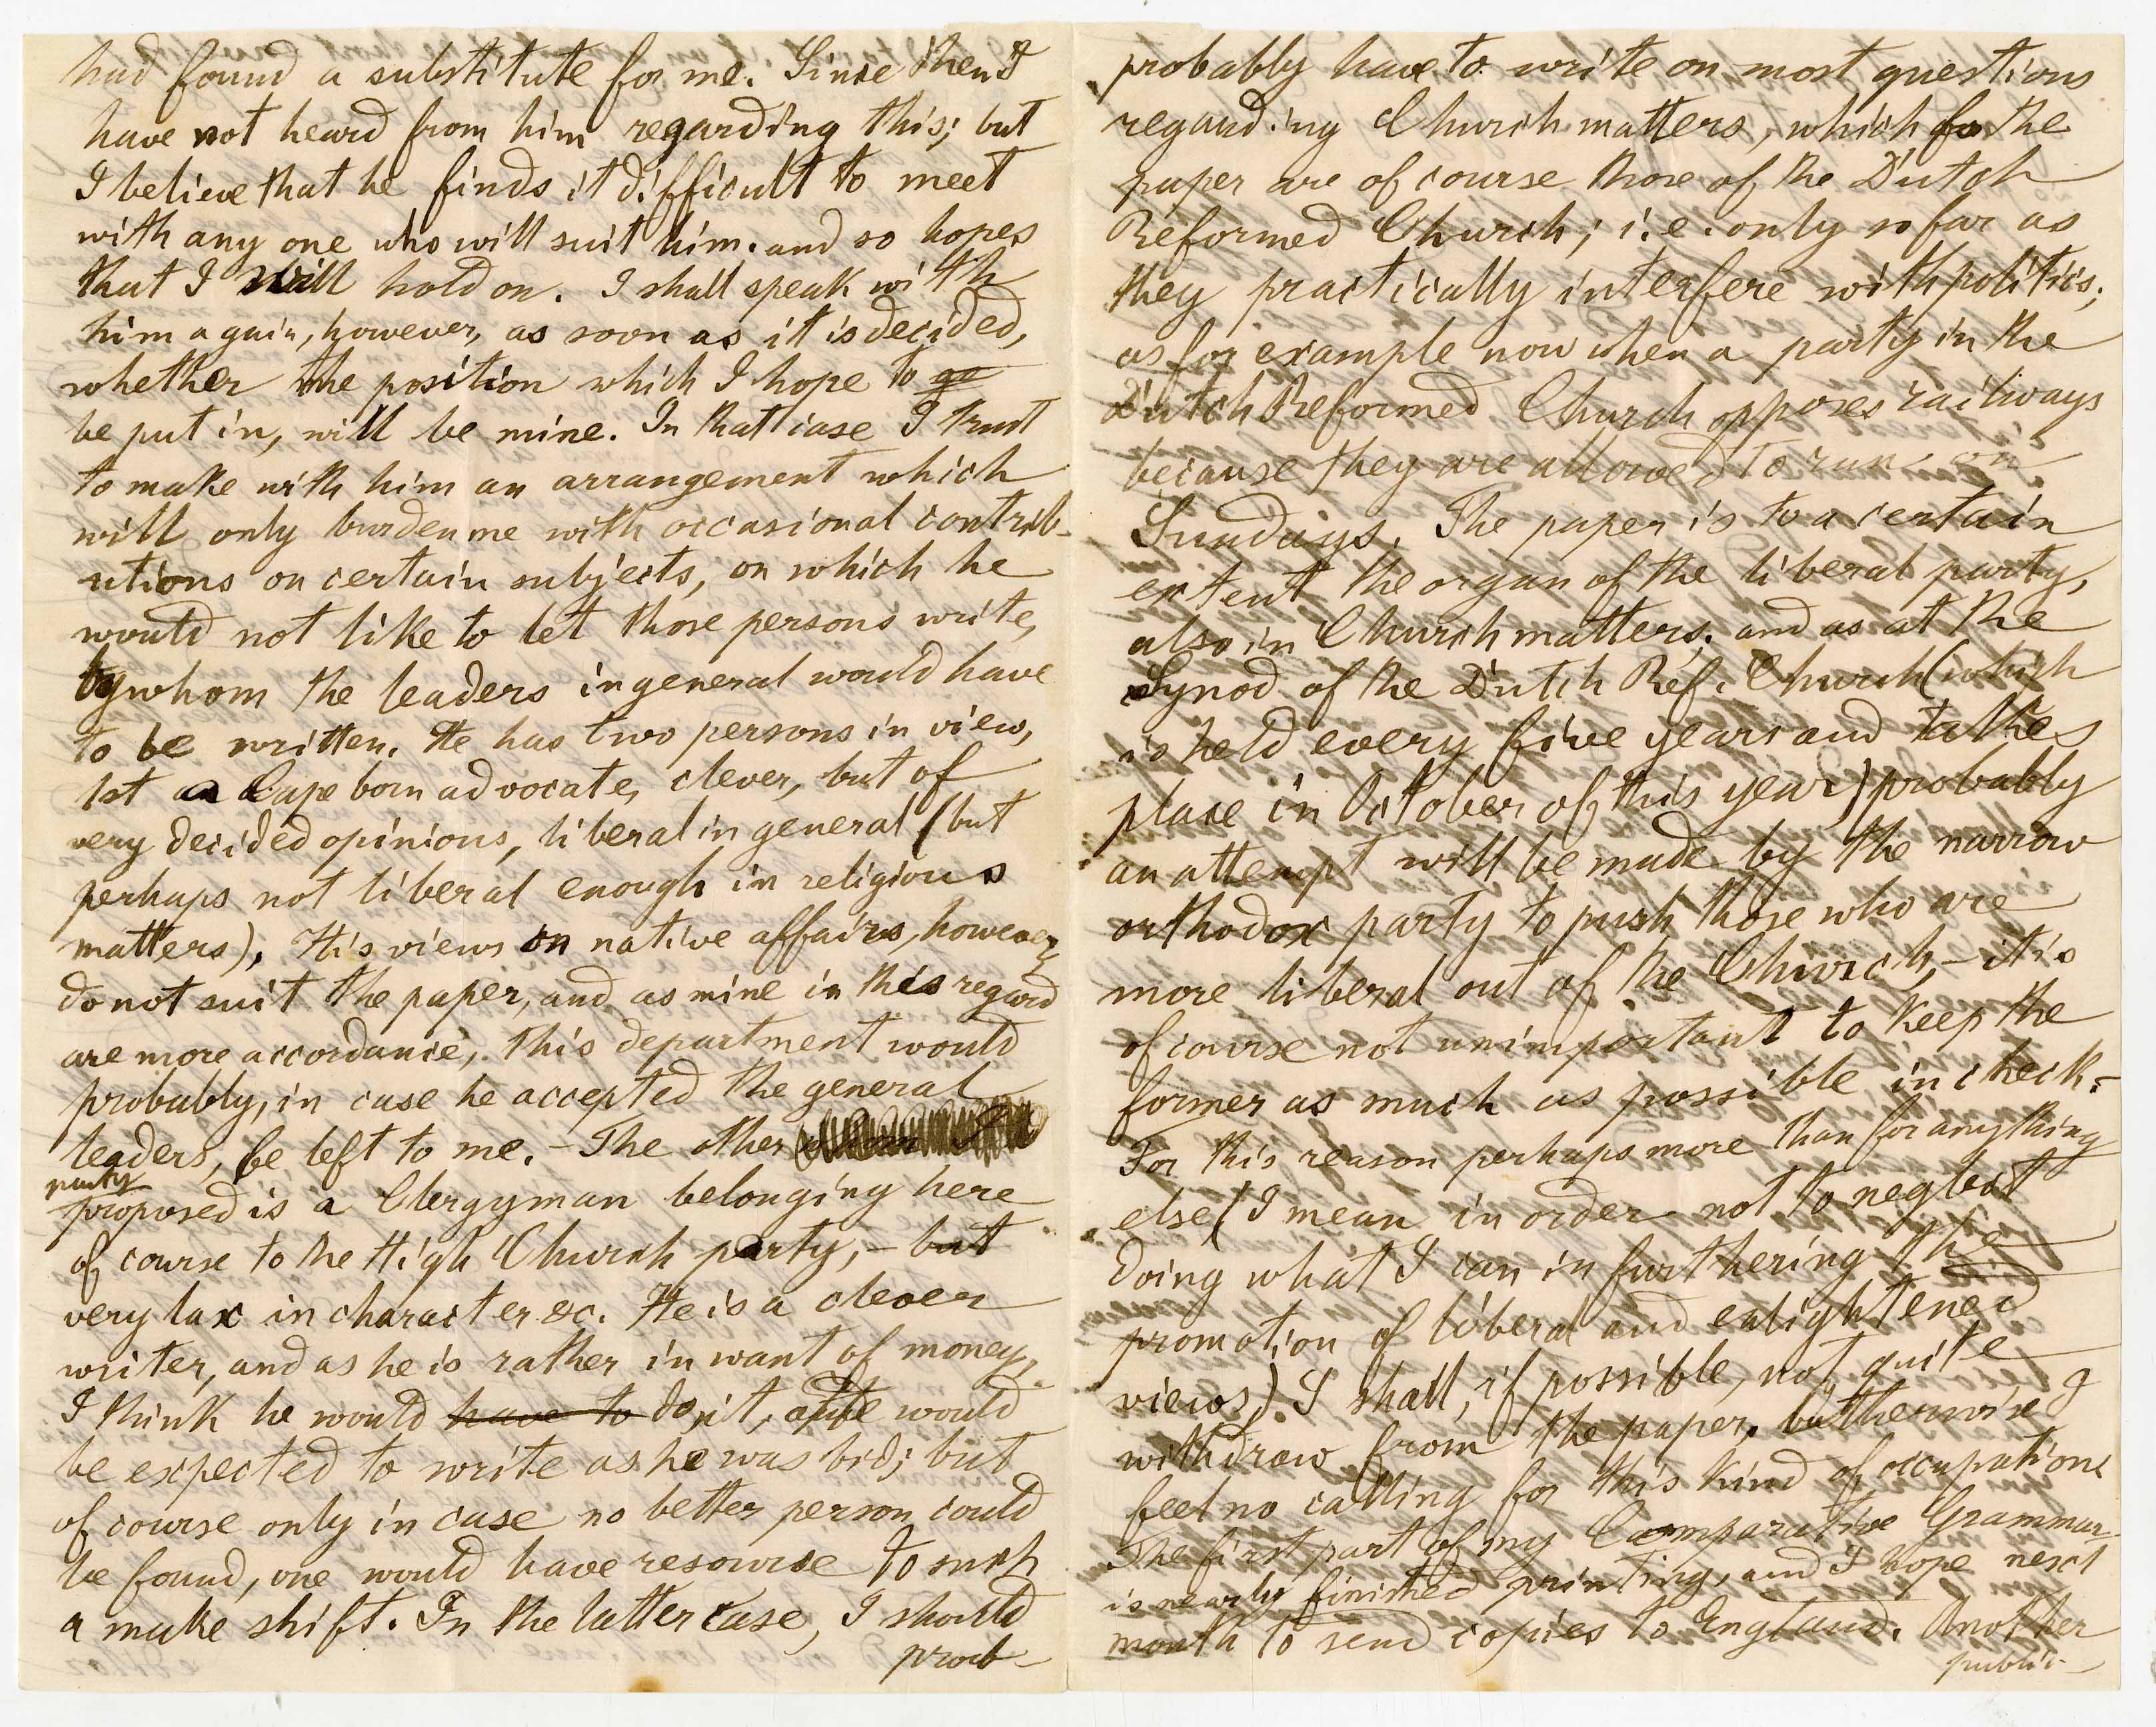 had found a substitute for me. Since then I
have not heard from him regarding this; but
I believe that he finds it difficult to meet
with any one who will suit him. and so hopes
that I will hold on. I shall speak with
him again, however, as soon as it is decided,
whether the position which I hope to go
be put in, will be mine. In that case I trust
to make with him an arrangement which
will only burden me with occasional contrib-
utions on certain subjects, on which he
would not like to let those persons write,
by whom the leaders in general would have
to be written. He has two persons in view,
1st a Cape born advocate, clever, but of
very decided opinions, liberal in general (but
perhaps not liberal enough in religious
matters). His views on native affairs, however,
do not suit the paper, and as mine in this regard
are more accordance, this department would
probably, in case he accepted the general
leaders, be left to me. – The other
party
proposed is a Clergyman belonging here
of course to the High Church party, – but
very lax in character &c. He is a clever
writer, and as he is rather in want of money,
I think he would have to do it, would
be expected to write as he was bid; but
of course only in case no better person could
be found, one would have resource to such
a make shift. In the latter case, I should
prob-
probably have to write on most questions
regarding Church matters, which for the
paper are of course those of the Dutch
Reformed Church; i.e. only so far as
they practically interfere with politics;
as for example now when a party in the
Dutch Reformed Church opposes railways
because they are allowed to run on
Sundays. The paper is to a certain
extent the organ of the liberal party,
also in Church matters, and as at the
Synod of the Dutch Ref. Church (which
is held every five years and takes
place in October of this year) probably
an attempt will be made by the narrow
orthodox party to push those who are
more liberal out of the Church, – it is
of course not unimportant to keep the
former as much as possible in check. –
For this reason perhaps more than for anything
else (I mean in order not to neglect
doing what I can in furthering the
promotion of liberal and enlightened
views) I shall, if possible, not quite
withdraw from the paper, but otherwise I
feel no calling for this kind of occupation
The first part of my Comparative Grammar
is nearly finished printing, and I hope next
month to send copies to England. Another
public-